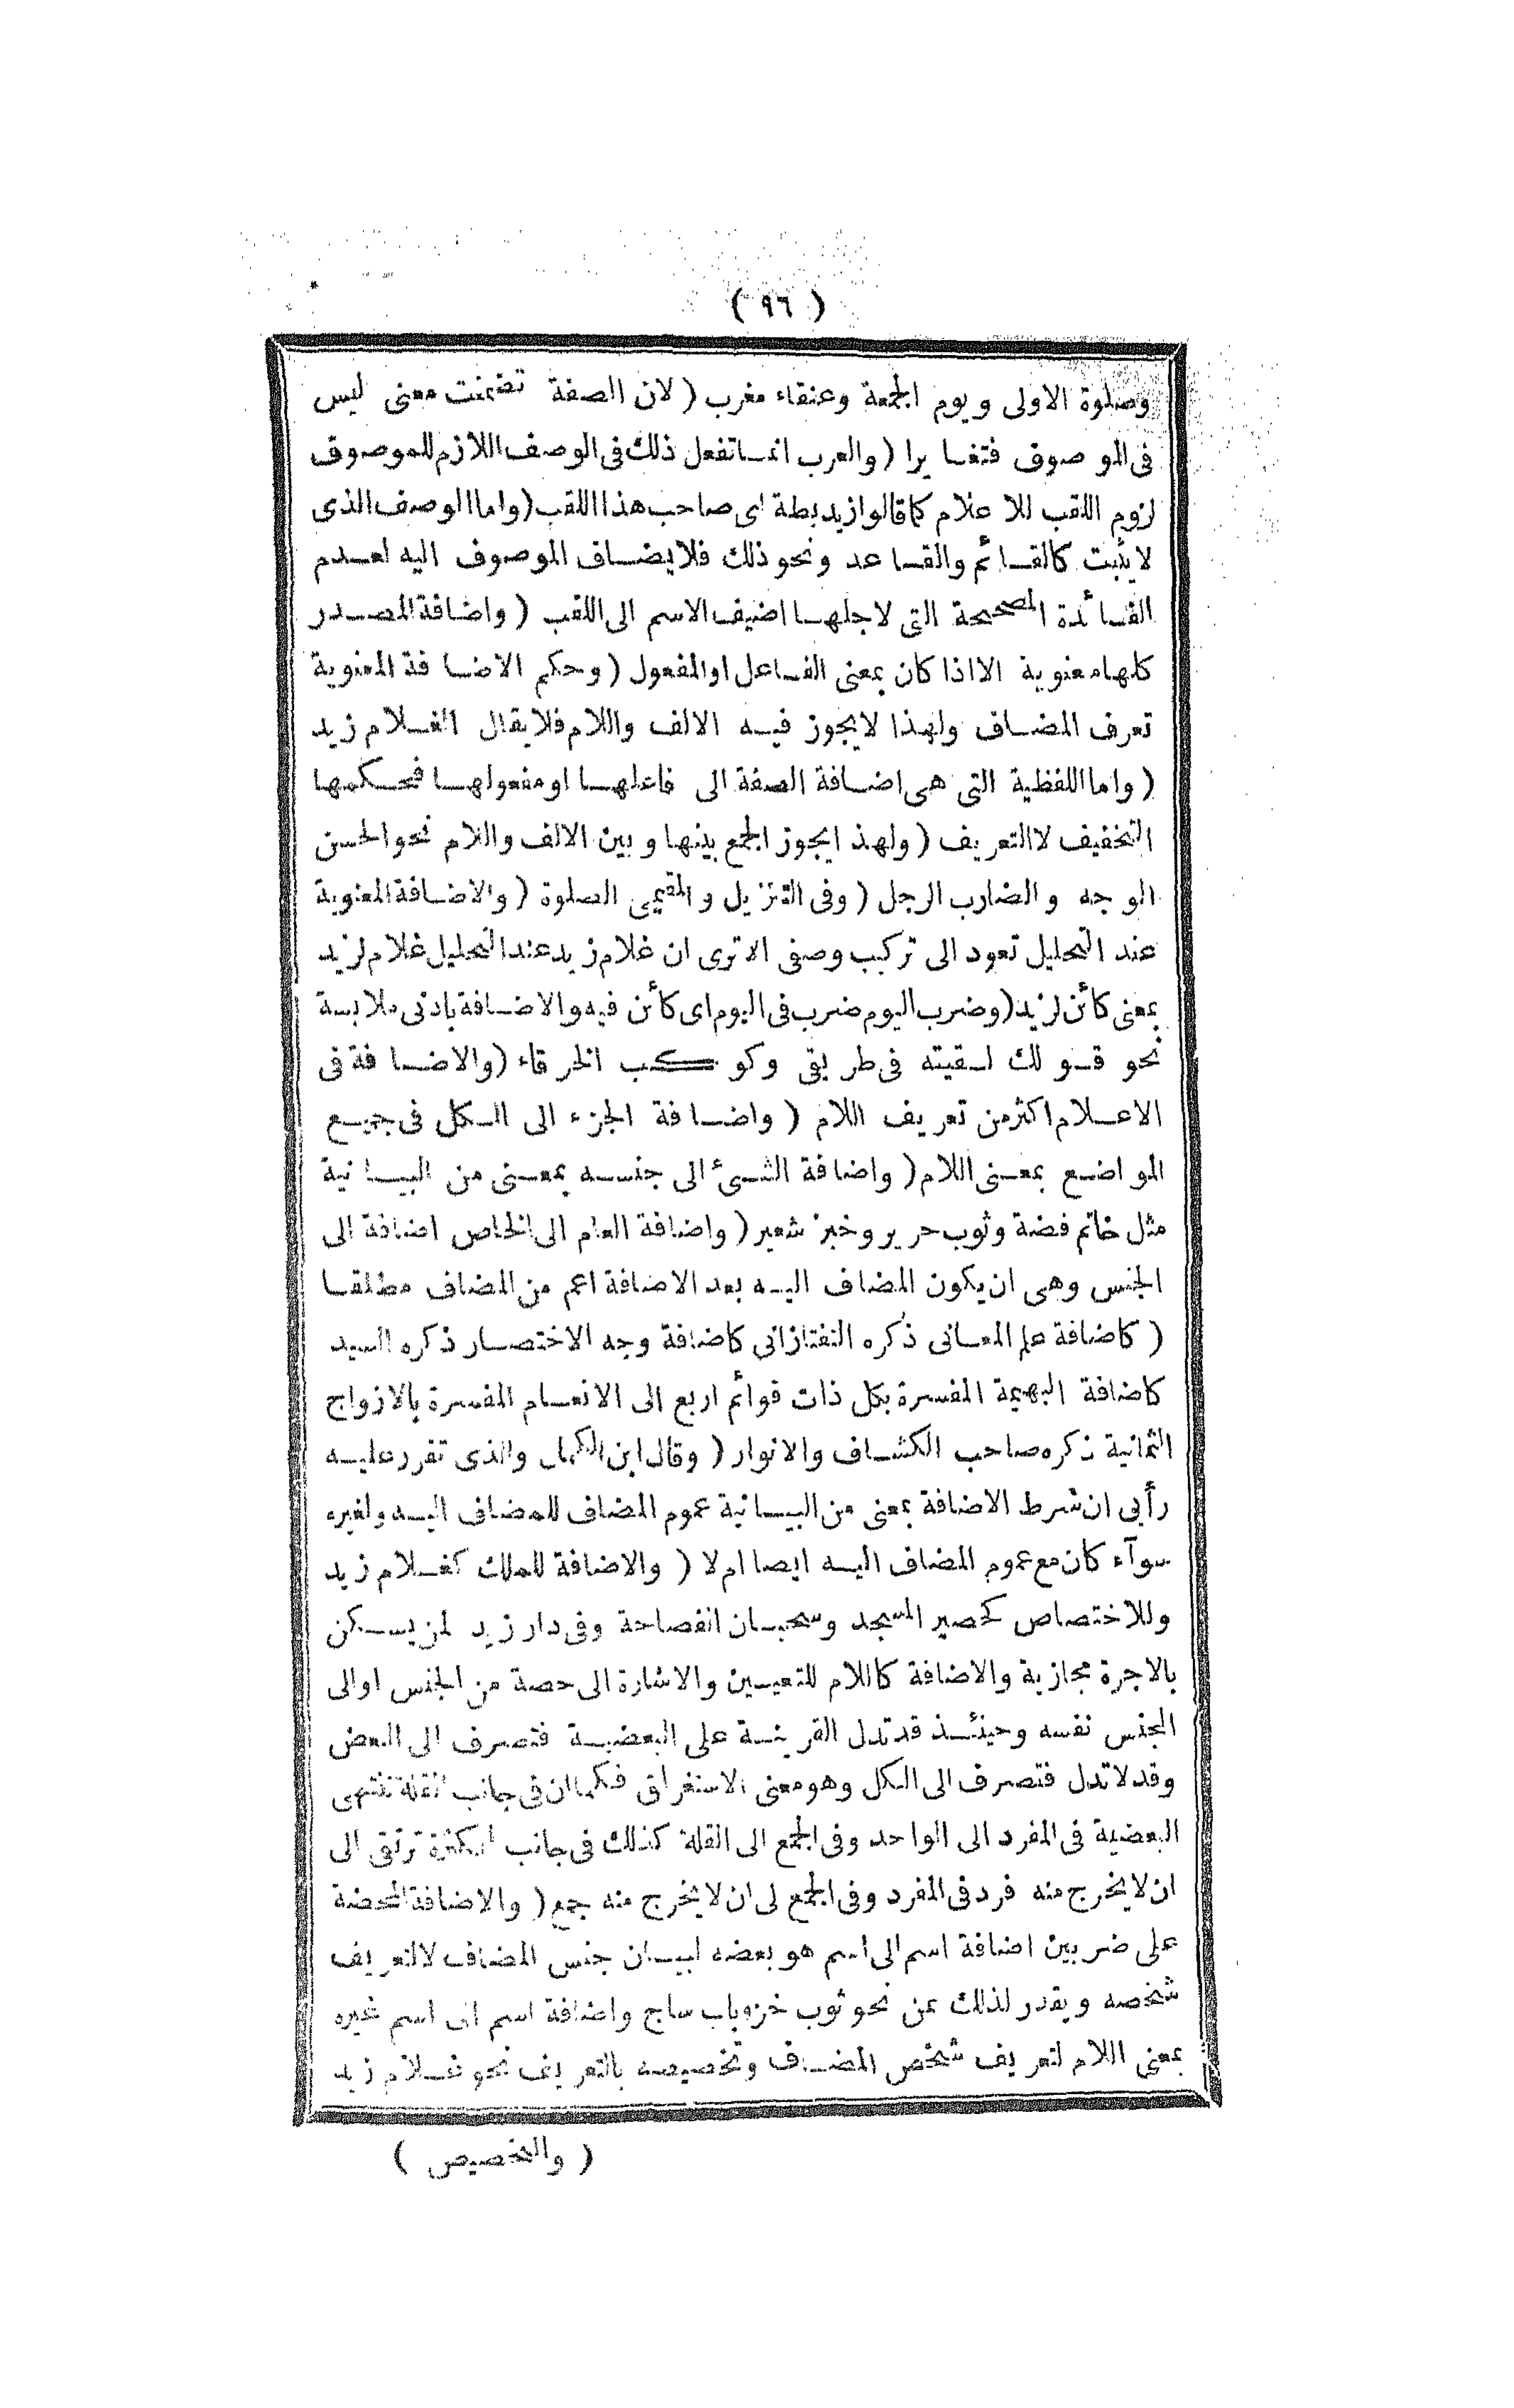 ( ٩٦ )
وصلوة الاولى ويوم الجمعة وعنقاء مغرب ( لان الصفة تضمنت معنى ليس
فى الموصوف فتغايرا ( والعرب انما تفعل ذلك فى الوصف اللازم للموصوف
لزوم اللقب للاعلام كما قالوا زيد بطة اى صاحب هذا اللقب ( واما الوصف الذى
لا يثبت كالقائم والقاعد ونحو ذلك فلا يضاف الموصوف اليه لعدم
الفائدة المصححة التى لاجلها اضيف الاسم الى اللقب ( واضافة المصدر
كلها معنوية الا اذا كان بمعنى الفاعل او المفعول ( وحكم الاضافة المعنوية
تعرف المضاف ولهذا لا يجوز فيه الالف واللام فلا يقال الغلام زيد
( واما اللفظية التى هى اضافة الصفة الى فاعلها او مفعولها فحكمها
التخفيف لا التعريف ( ولهذا يجوز الجمع بينها وبين الالف واللام نحو الحسن
الوجه والضارب الرجل ( وفى التنزيل والمقيمى الصلوة ( والاضافة المعنوية
عند التحليل تعود الى تركيب وصفى الا ترى ان غلام زيد عند التحليل غلام لزيد
بمعنى كائن لزيد ( وضرب اليوم ضرب فى اليوم اى كائن فيه والاضافة بادنى ملابسة
نحو قولك لقيته فى طريقى وكوكب الخرقاء ( والاضافة فى
الاعلام اكثر من تعريف اللام ( واضافة الجزء الى الكل فى جميع
المواضع بمعنى اللام ( واضافة الشىء الى جنسه بمعنى من البيانية
مثل خاتم فضة وثوب حرير وخبز شعير ( واضافة العام الى الخاص اضافة الى
الجنس وهى ان يكون المضاف اليه بعد الاضافة اعم من المضاف مطلقا
( كاضافة علم المعانى ذكره التفتازانى كاضافة وجه الاختصار ذكره السيد
كاضافة البهيمة المفسرة بكل ذات قوائم اربع الى الانعام المفسرة بالازواج
الثمانية ذكره صاحب الكشاف والانوار ( وقال ابن الكمال والذى تقرر عليه
رأيى ان شرط الاضافة بمعنى من البيانية عموم المضاف للمضاف اليه ولغيره
سوآء كان مع عموم المضاف اليه ايضا ام لا ( والاضافة للملك كغلام زيد
وللاختصاص كحصير المسجد وسحبان الفصاحة وفى دار زيد لمن يسكن
بالاجرة مجازية والاضافة كاللام للتعيين والاشارة الى حصة من الجنس او الى
الجنس نفسه وحينئذ قد تدل القرينة على البعضية فتصرف الى البعض
وقد لا تدل فتصرف الى الكل وهو معنى الاستغراق فكما ان فى جانب القلة تنتهى
البعضية فى المفرد الى الواحد وفى الجمع الى القلة كذلك فى جانب الكثرة ترتقى الى
ان لا يخرج منه فرد فى المفرد وفى الجمع لى ان لا يخرج منه جمع ( والاضافة المحضة
على ضربين اضافة اسم الى اسم هو بعضه لبيان جنس المضاف لا لتعريف
شخصه ويقدر لذلك بمن نحو ثوب خز وباب ساج واضافة اسم الى اسم غيره
بمعنى اللام لتعريف شخص المضاف وتخصيصه بالتعريف نحو غلام زيد
( والتخصيص )